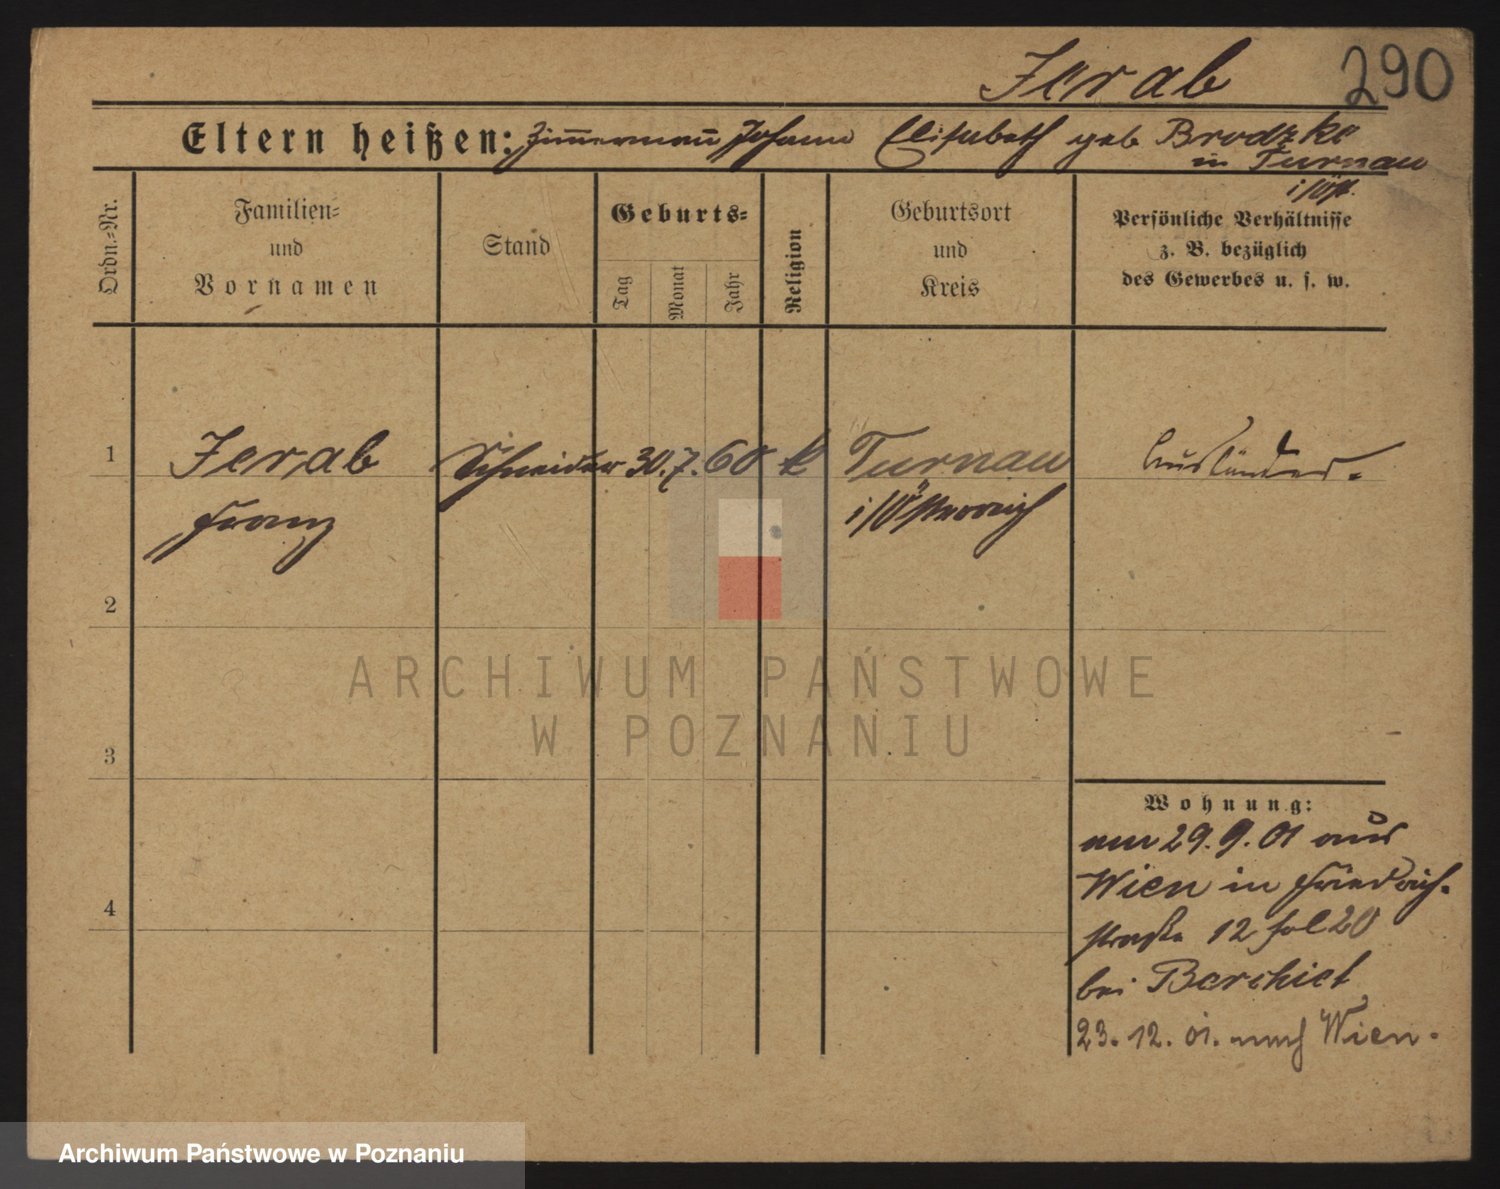 Jerab 290
Eltern heißen: Zimmermañ Johann Elisabeth geb Brodzke
in Turnau
i/Öst.
Ordn.=Nr.
Familien=
und
Vornamen
Stand
Geburts=
Tag
Monat
Jahr
Religion
Geburtsort
und
Kreis
Persönliche Verhältnisse
z. B. bezüglich
des Gewerbes u. s. w.
1 Jerab Schneider 30. 7. 60 k Turnau Ausländer.
Franz i/Österreich
2
3
4
Wohnung:
am 29. 9. 01 aus
Wien in Friedrich-
straße 12 fol 20
bei Barchiet
23. 12. 01. nach Wien.
ARCHIWUM PAŃSTWOWE
W POZNANIU
Archiwum Państwowe w Poznaniu